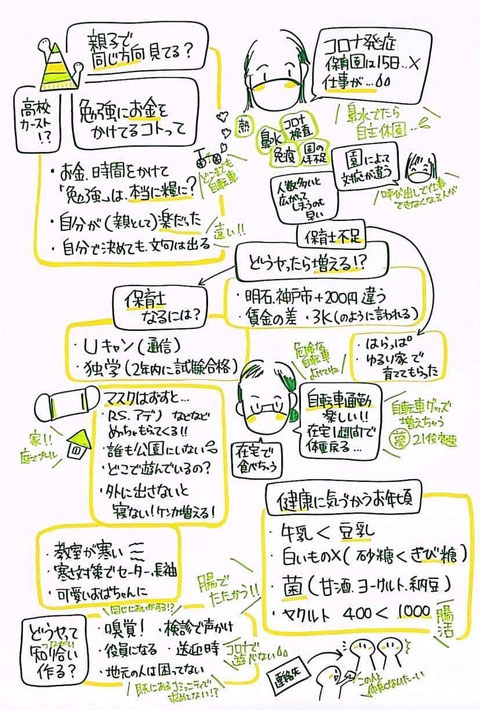 親子で
同じ方向見てる？
高校
カースト!?
勉強にお金を
かけてるコトって
・お金、時間をかけて
「勉強」は、本当に糧に？
・自分が(親として)楽だった
・自分で決めても、文句は出る
遠い!!
どこまでも
自転車
コロナ発症
保育園は15日…×
仕事が…
鼻水でたら
自主休園…
熱
鼻水
コロナ
検査
免疫
園の
人手不足
園によって
対応が違う
呼び出しで仕事
できなくなる人が
人数多いと
広がって
しまうのも
早い
保育士不足
どうやったら増える!?
・明石、神戸市+200円違う
・賃金の差 ・3K(のように言われる)
保育士
なるには？
・Uキャン(通信)
・独学(2年内に試験合格)
・はらっぱ
・ゆるり家で
育ててもらった
マスクはずすと…
・RS、アデノ などなど
めっちゃもらってくる!!
・誰も公園にいない
・どこで遊んでいるの？
・外に出さないと
寝ない！ケンカ増える！
家!!
庭でプール
危険な
自転車
よけてね
自転車通勤
楽しい!!
在宅1週間で
体重戻る…
自転車グッズ
増えちゃう
夢
21段変速
在宅で
食べちゃう
健康に気づかうお年頃
・牛乳<豆乳
・白いもの×(砂糖<きび糖)
・菌(甘酒、ヨーグルト、納豆)
・ヤクルト 400<1000
腸活
・教室が寒い
・寒さ対策でセーター、長袖
・可愛いおばちゃんに
腸で
たたかう!!
同じにおいがする!?
どうやって
つながい
知り合い
作る？
・嗅覚！ ・検診で声かけ
・役員になる ・送迎時
・地元の人は困ってない
コロナで
遊べない
既にあるコミュニティで
求めてない!?
連絡先
この人と
仲良くなりたーい